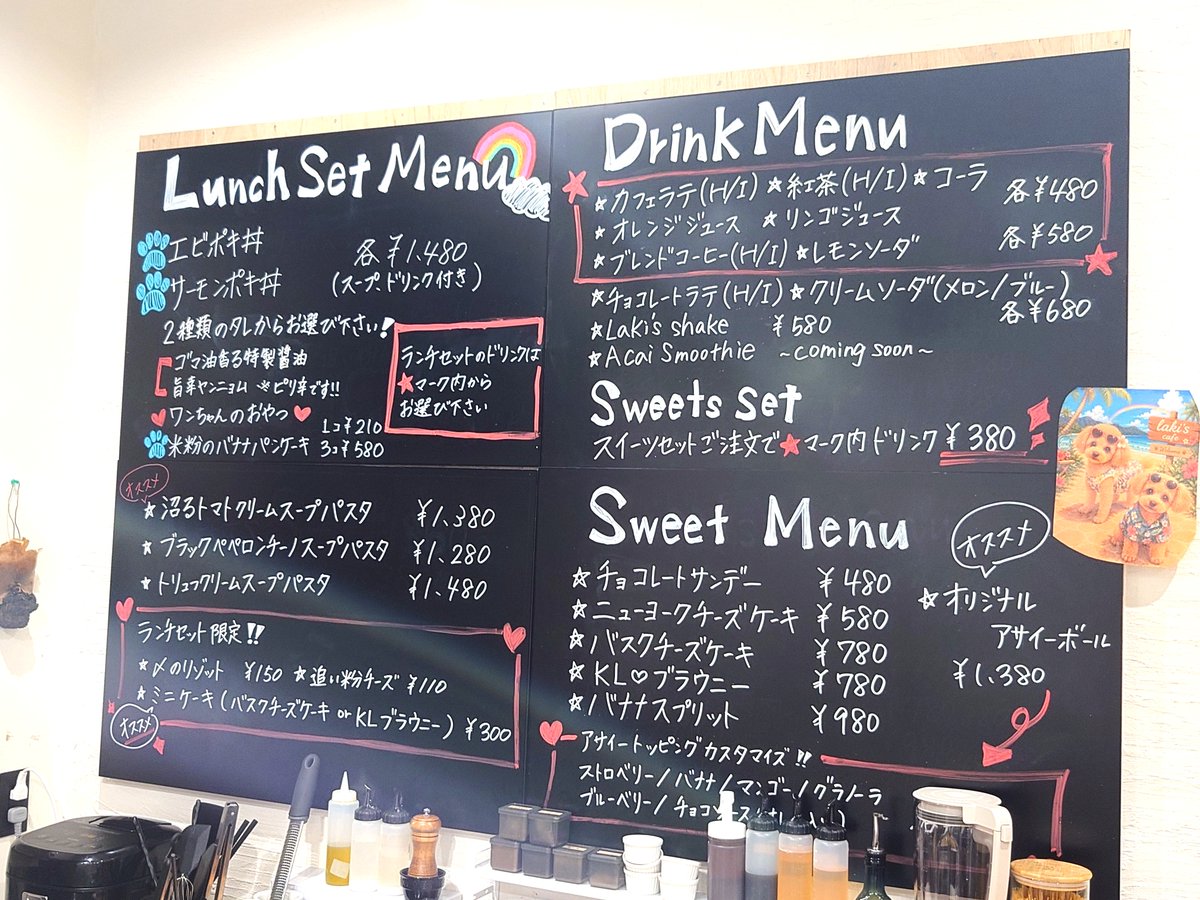 Lunch Set Menu
エビポキ丼
サーモンポキ丼
各¥1,480
(スープ、ドリンク付き)
2種類のタレからお選び下さい!
ゴマ油香る特製醤油
旨辛ヤンニョム ※ピリ辛です!!
ランチセットのドリンクは
★マーク内から
お選び下さい
♥ワンちゃんのおやつ♥
1コ¥210
米粉のバナナパンケーキ 3コ¥580
オススメ
☆沼るトマトクリームスープパスタ ¥1,380
☆ブラックペペロンチーノスープパスタ ¥1,280
☆トリュフクリームスープパスタ ¥1,480
ランチセット限定!!
☆〆のリゾット ¥150 ☆追い粉チーズ ¥110
☆ミニケーキ(バスクチーズケーキ or KLブラウニー) ¥300
オススメ
Drink Menu
★カフェラテ(H/I) ★紅茶(H/I) ★コーラ 各¥480
★オレンジジュース ★リンゴジュース
★ブレンドコーヒー(H/I) ★レモンソーダ 各¥580
★チョコレートラテ(H/I) ★クリームソーダ(メロン/ブルー)
各¥680
★Laki's shake ¥580
★Acai Smoothie ~coming soon~
Sweets Set
スイーツセットご注文で★マーク内ドリンク ¥380
laki's
cafe
Sweet Menu
☆チョコレートサンデー ¥480
☆ニューヨークチーズケーキ ¥580
☆バスクチーズケーキ ¥780
☆KL♡ブラウニー ¥780
☆バナナスプリット ¥980
オススメ
☆オリジナル
アサイーボール
¥1,380
アサイートッピングカスタマイズ!!
ストロベリー/バナナ/マンゴー/グラノーラ
ブルーベリー/チョコ